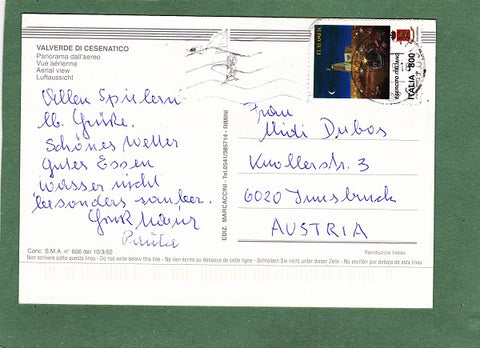 VALVERDE DI CESENATICO
Panorama dall'aereo
Vue aérienne
Aerial view
Luftaussicht
Allen Spielern
lb. Grüße.
Schönes Wetter
Gutes Essen
Wasser nicht
besonders sauber.
EDIZ. MARCACCINI - Tel. 0541/385714 - RIMINI
EL ALAMEIN
ESERCITO ITALIANO
ITALIA 800
Frau
Midi Dubos
Knollerstr. 3
6020 Innsbruck
AUSTRIA
Conc. S.M.A. n° 806 del 10/3/92
Riproduzione Vietata
Non scrivere sotto questa linea - Do not write below this line - Ne rien écrire au-dessous de cette ligne - Schreiben Sie nicht unter dieser Zeile - No escribir por debajo de esta línea